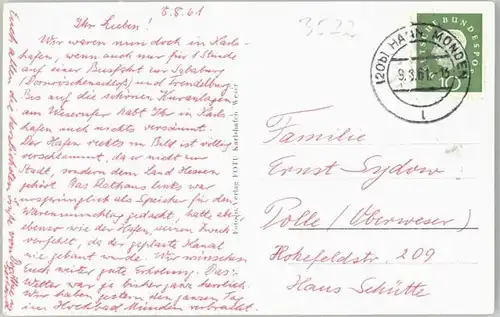 8.8.61
Ihr Lieben!
Wir waren nun doch in Karls-
hafen, wenn auch nur für 1 Stunde
auf einer Busfahrt zur Sababurg
(Dornröschenschloß) und Trendelburg.
Bis auf die schönen Kuranlagen
am Weserufer habt Ihr in Karls-
hafen auch nichts versäumt.
Der Hafen rechts im Bild ist völlig
verschlammt, da er nicht zur
Stadt, sondern dem Land Hessen
gehört. Das Rathaus links war
ursprünglich als Speicher für den
Warenumschlag gedacht, hatte aber
ebenso wie der Hafen, seinen Zweck
verfehlt, da der geplante Kanal
nie gebaut wurde. Wir wünschen
Euch weiter gute Erholung. Das
Wetter war ja bisher ganz herrlich.
Wir haben gestern den ganzen Tag
im Hochbad Münden verbracht.
Euch allen die herzlichsten Grüße von
Foto-Verlag FOTU Karlshafen Weser
3522
DEUTSCHE BUNDESPOST
10
(20b) HANN. MÜNDEN
9.8.61
l
Familie
Ernst Sydow
Polle (Oberweser)
Hohefeldstr. 209
Haus Schütte